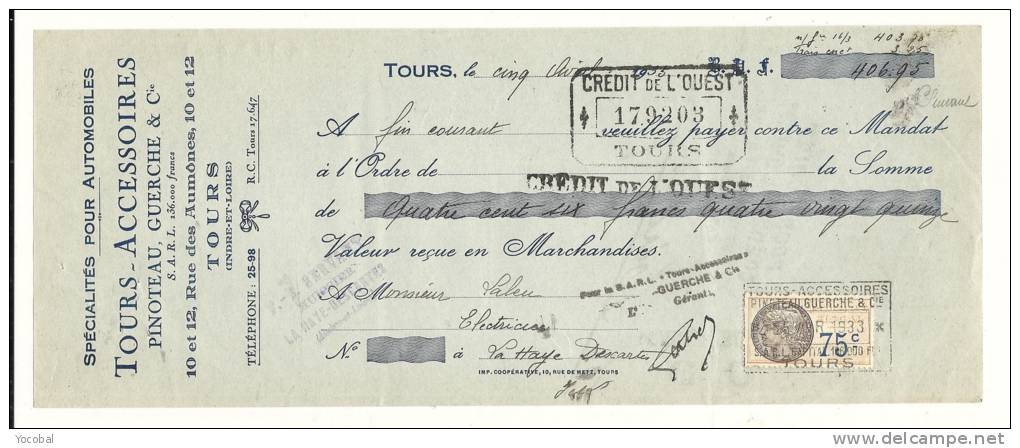 SPÉCIALITÉS POUR AUTOMOBILES
TOURS-ACCESSOIRES
PINOTEAU, GUERCHE & Cie
S. A. R. L. 136.000 francs
10 et 12, Rue des Aumônes, 10 et 12
TOURS
(INDRE-ET-LOIRE)
TÉLÉPHONE : 25-98 R. C. Tours 17.647
n/ fre 16/3 403
3.25
TOURS, le cinq Avril 1933 406.95
CRÉDIT DE L'OUEST
179203
TOURS
A fin courant veuillez payer contre ce Mandat
à l'Ordre de la Somme
CRÉDIT DE L'OUEST
de Quatre cent six francs quatre vingt quinze
Valeur reçue en Marchandises.
Pour la S.A.R.L. « Tours-Accessoires »
GUERCHE & Cie
Gérant
A Monsieur Saleu
Electricien
No à La Haye Descartes
IMP. COOPÉRATIVE, 10, RUE DE METZ, TOURS
TOURS-ACCESSOIRES
PINOTEAU GUERCHE & CIE
1933
75c
S.A.R.L. CAPITAL 136.000 F
TOURS
Yocobal
delcampe.net